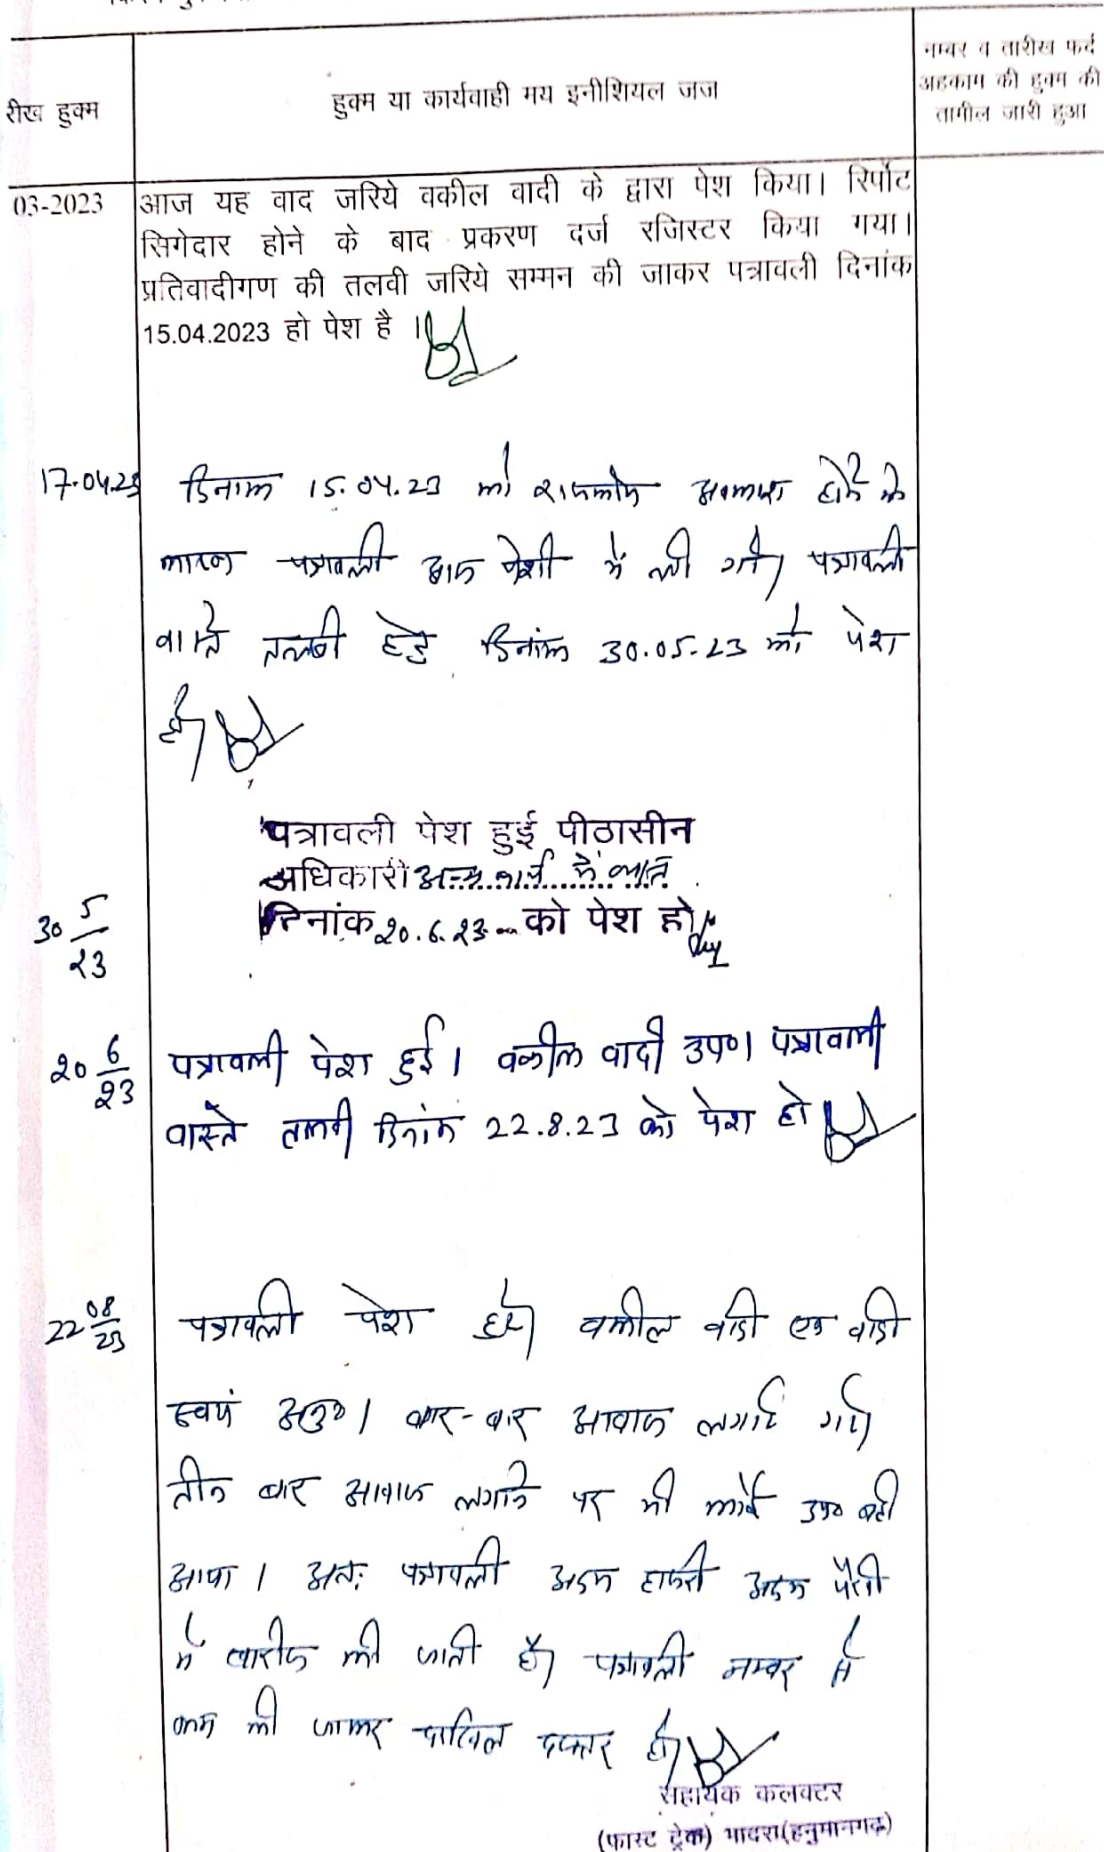 नम्बर व तारीख फर्द
रीख हुक्म
हुक्म या कार्यवाही मय इनीशियल जज
अहकाम की हुक्म की
तामील जारी हुआ
03-2023
आज यह वाद जरिये वकील वादी के द्वारा पेश किया। रिर्पोट
सिगेदार होने के बाद प्रकरण दर्ज रजिस्टर किया गया।
प्रतिवादीगण की तलवी जरिये सम्मन की जाकर पत्रावली दिनांक
15.04.2023 हो पेश है ।
17.04.23
दिनांक 15.04.23 को राजकीय अवकाश होने के
कारण पत्रावली आज पेशी में ली गई। पत्रावली
वास्ते तलबी हेतु दिनांक 30.05.23 को पेश
हो।
पत्रावली पेश हुई पीठासीन
अधिकारी अन्य कार्य में व्यस्त
30 5/23
दिनांक 20.6.23 को पेश हो
20 6/23
पत्रावली पेश हुई। वकील वादी उप०। पत्रावली
वास्ते तलबी दिनांक 22.8.23 को पेश हो
22 08/23
पत्रावली पेश हुई। वकील वादी एवं वादी
स्वयं अनु०। बार-बार आवाज लगाई गई।
तीन बार आवाज लगाने पर भी कोई उप० नही
आया। अतः पत्रावली अदम हाजरी अदम पैरवी
में खारीज की जाती है। पत्रावली नम्बर से
कम की जाकर दाखिल दफ्तर हो।
सहायक कलक्टर
(फास्ट ट्रेक) भादरा(हनुमानगढ़)